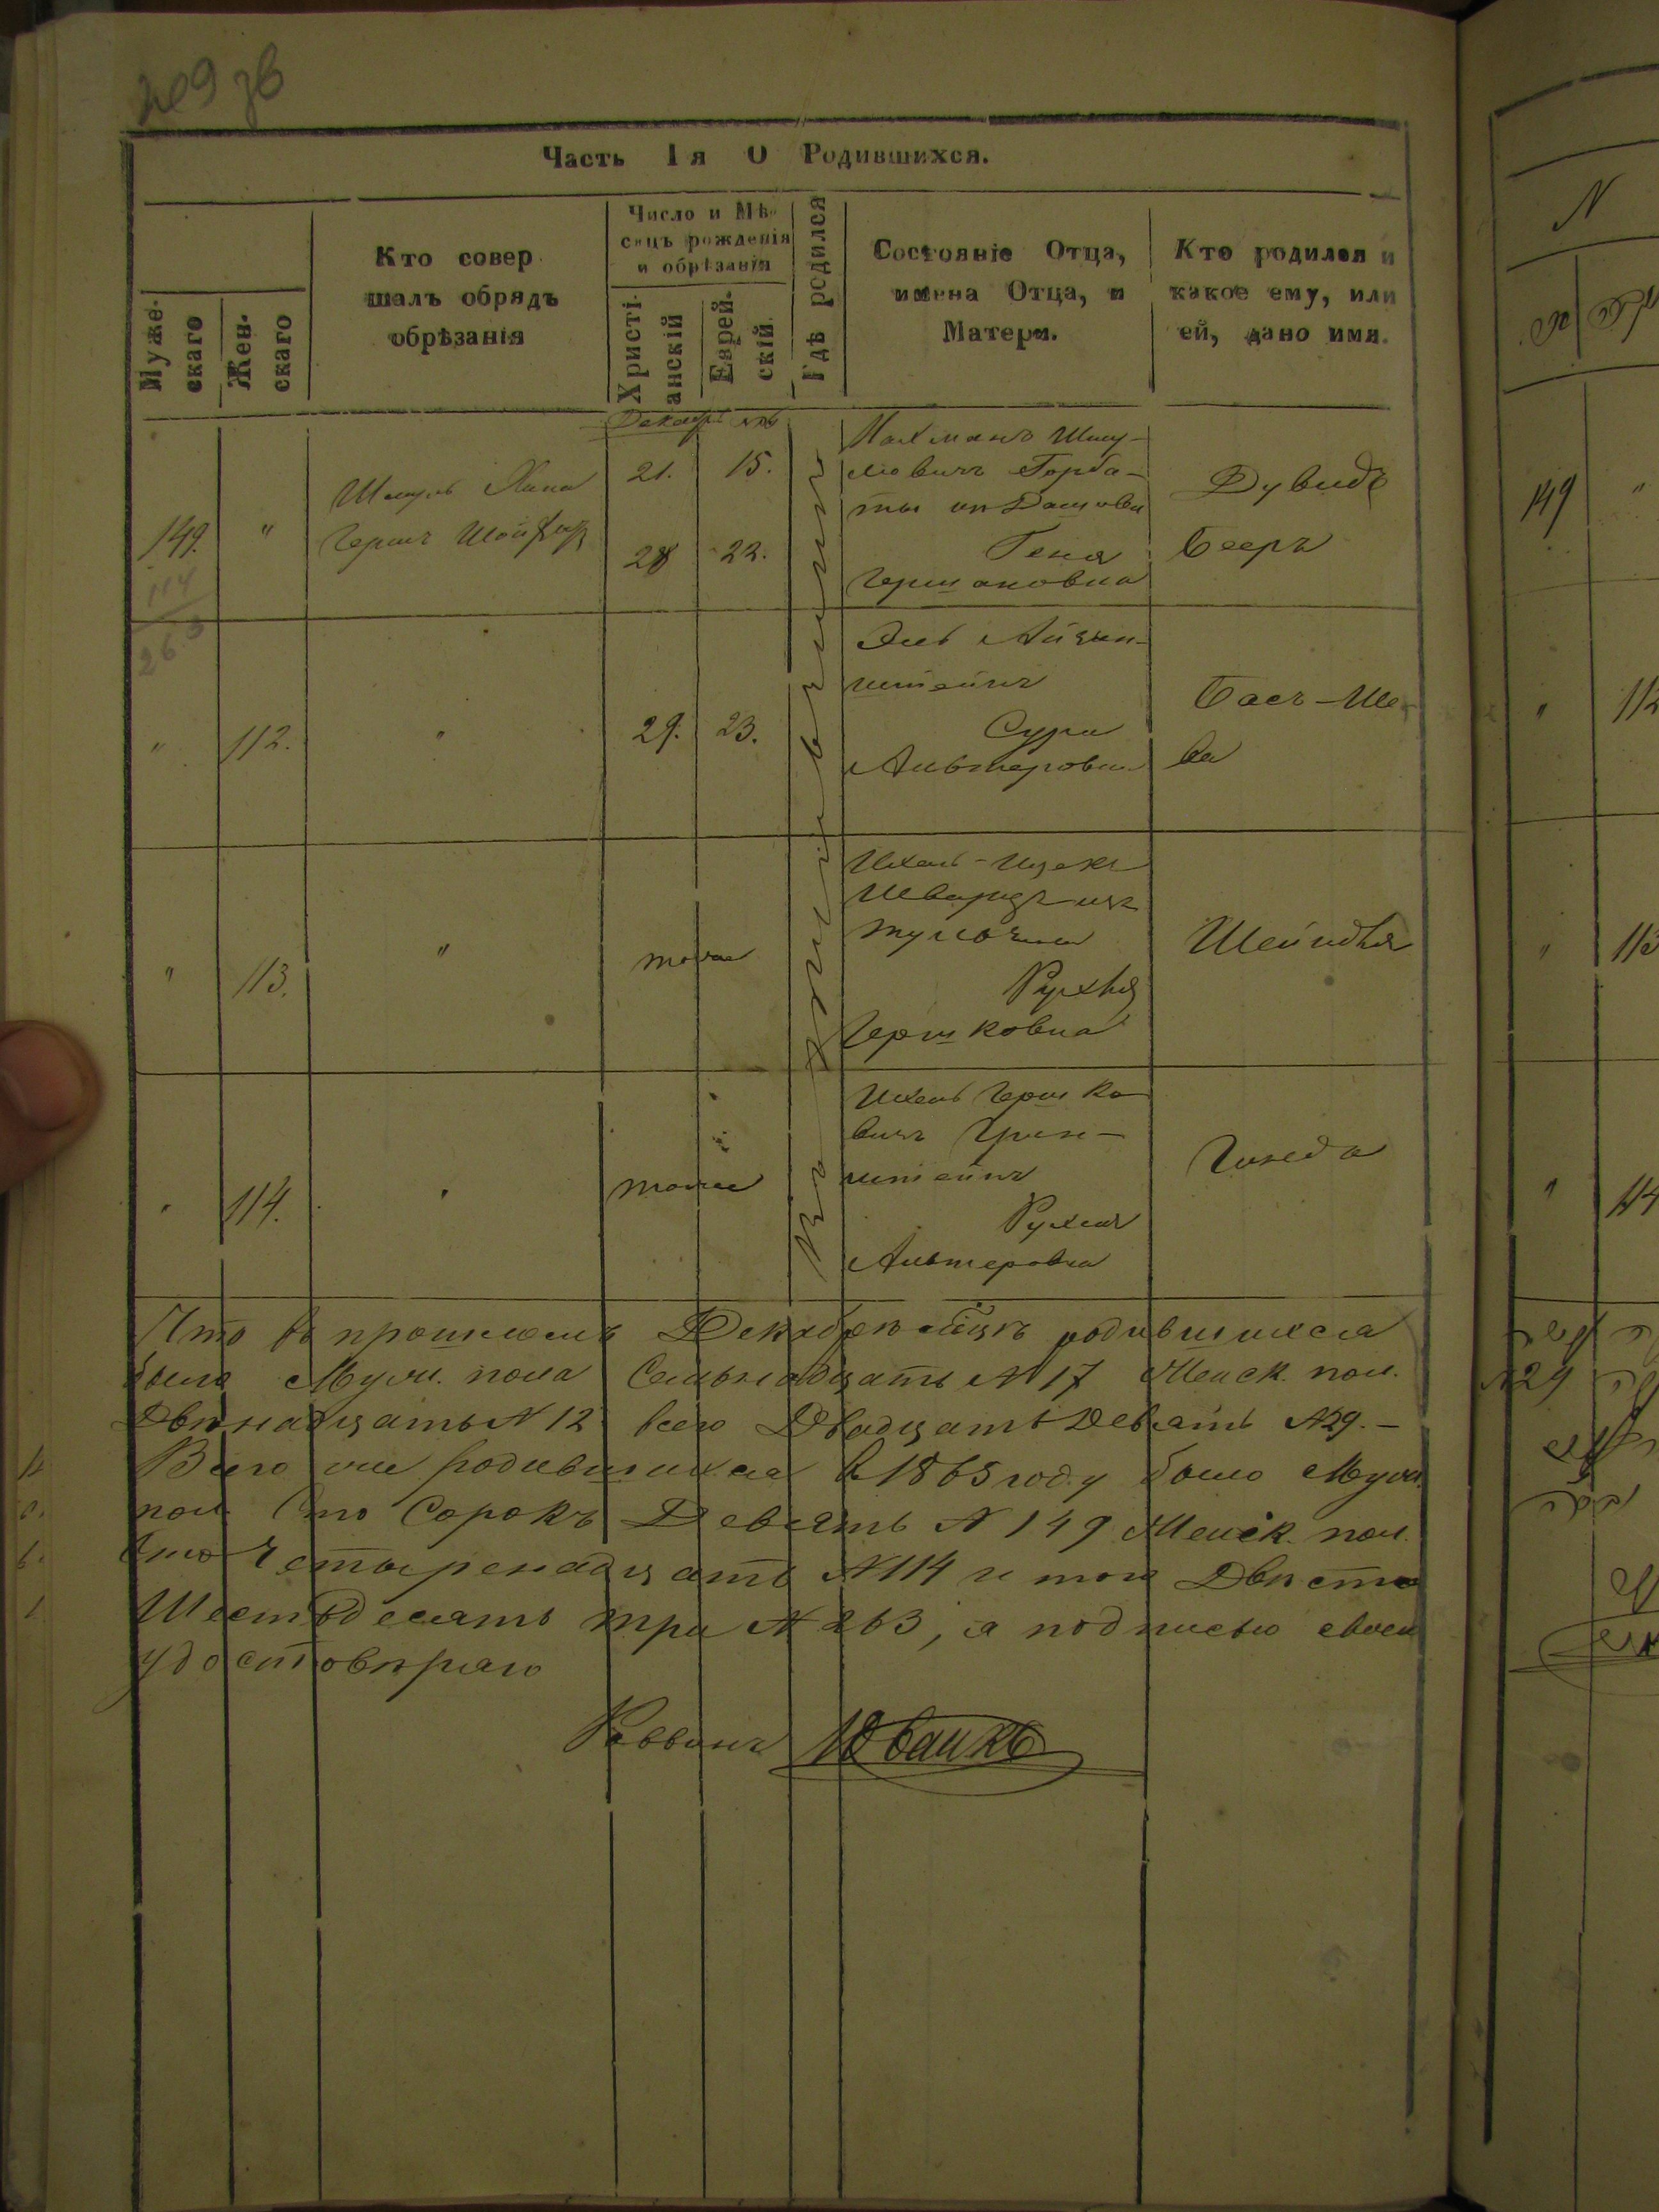 209 зв
Часть 1я О Родившихся.
Муже-
скаго
Жен-
скаго
Кто совер
шалъ обрядъ
обрѣзанія
Число и Мѣ-
сяцъ рожденія
и обрѣзанія
Христі-
анскій
Еврей-
скій.
Гдѣ родился
Состояніе Отца,
имена Отца, и
Матери.
Кто родился и
какое ему, или
ей, дано имя.
149.
"
Шмуль
Гершъ
21. 15.
28 22.
Нахманъ Шму-
ловичъ Горба-
ты
Геня
Гершановна
Дувидъ
Бееръ
114
263
"
112.
"
29. 23.
Айзин-
штейнъ
Сура
Альтеровна
Басъ-Ше-
ва
"
113.
"
тоже
Ихель-Ицекъ
Шварцъ изъ
Тульчина
Рухля
Гершковна
Шейндля
"
114.
"
тоже
Ихель Гершко
вичъ Грин-
штейнъ
Рухля
Альтеровна
Гинеда
Что въ прошломъ Декабрѣ мѣсяцѣ родившихся
было Муж. пола Семьнадцать N 17 Женск. пол.
Двѣнадцать N 12 всего Двадцать Девять N 29.–
Всего же родившихся в 1865 году было Муж.
пол. Сто Сорокъ Девять N 149 Женск. пол.
Сто Четыренадцать N 114 и того Двѣсти
Шестьдесять три N 263, а подписью своею
удостовѣряю
Раввинъ
N
149 "
" 112
" 113
" 114
N 29